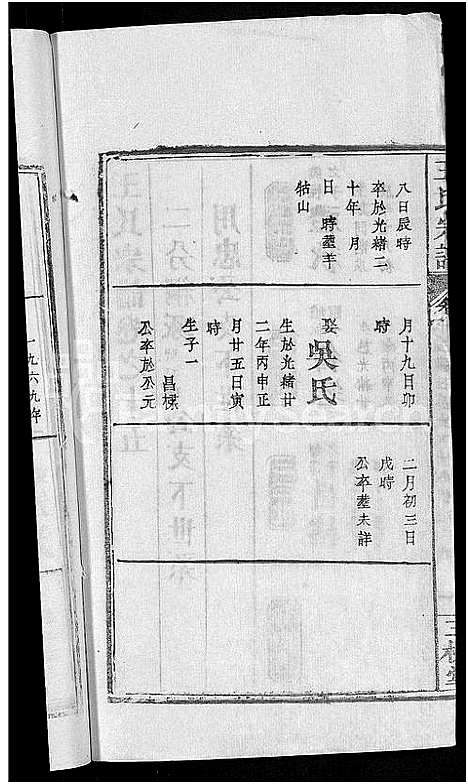 王氏宗譜
三槐堂
八日辰時
卒於光緒二
十年 月
日 時葬羊
牯山
月十九日卯
時
娶吳氏
生於光緒廿
二年丙申正
月廿五日寅
時
生子一
昌樑
公卒於公元
二月初三日
戌時
公卒葬未詳
一九六九年